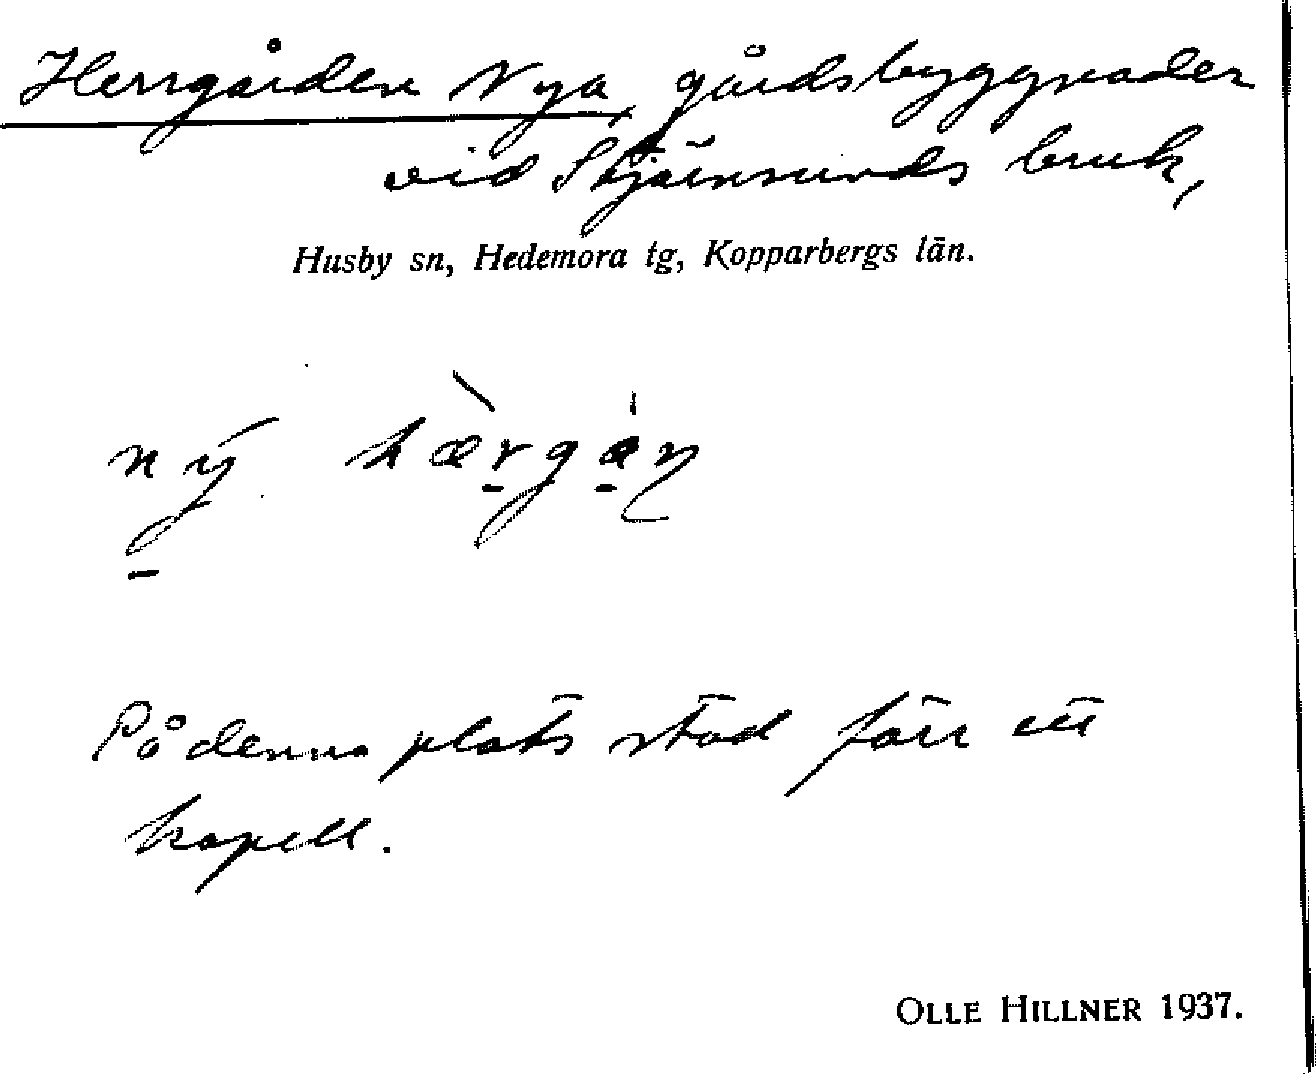 Herrgården Nya, gårdsbyggnader
vid Stjärnsunds bruk,
Husby sn, Hedemora tg, Kopparbergs län.
På denna plats stod förr ett
kapell.
OLLE HILLNER 1937.